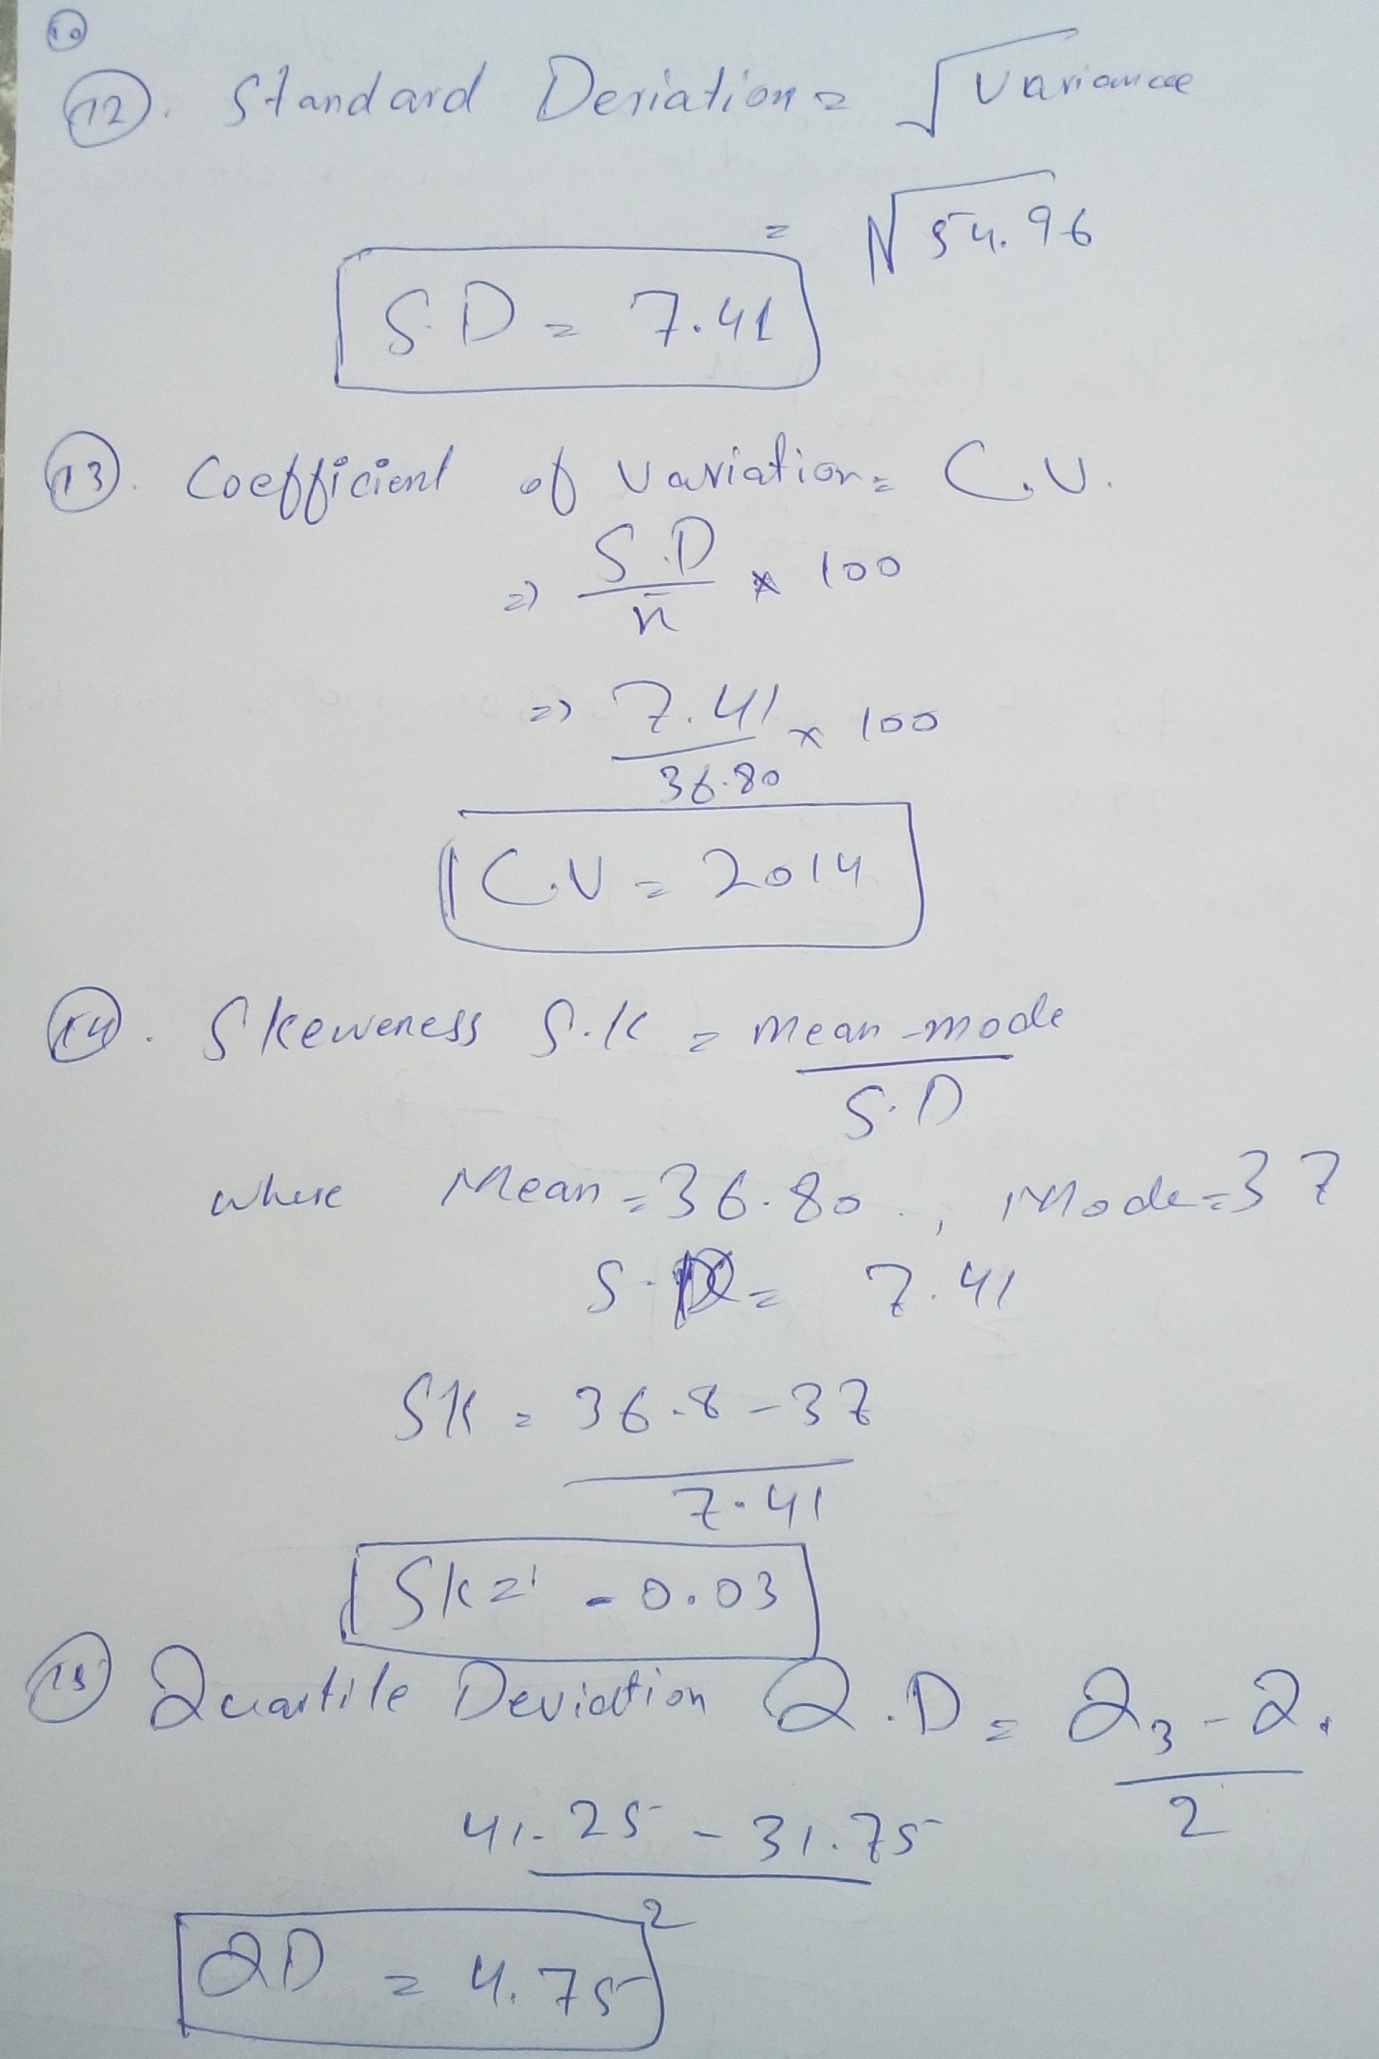 10
12. Standard Deviation = √Variance
= √54.96
S.D = 7.41
13. Coefficient of Variation = C.V.
=> S.D / x̄ × 100
=> 7.41 / 36.80 × 100
C.V = 2014
14. Skeweness S.K = Mean - mode / S.D
where Mean = 36.80 ., Mode = 37
S.D = 7.41
SK = 36.8 - 37 / 7.41
SK = - 0.03
15 Quartile Deviation Q.D = Q3 - Q1 / 2
41.25 - 31.75 / 2
QD = 4.75